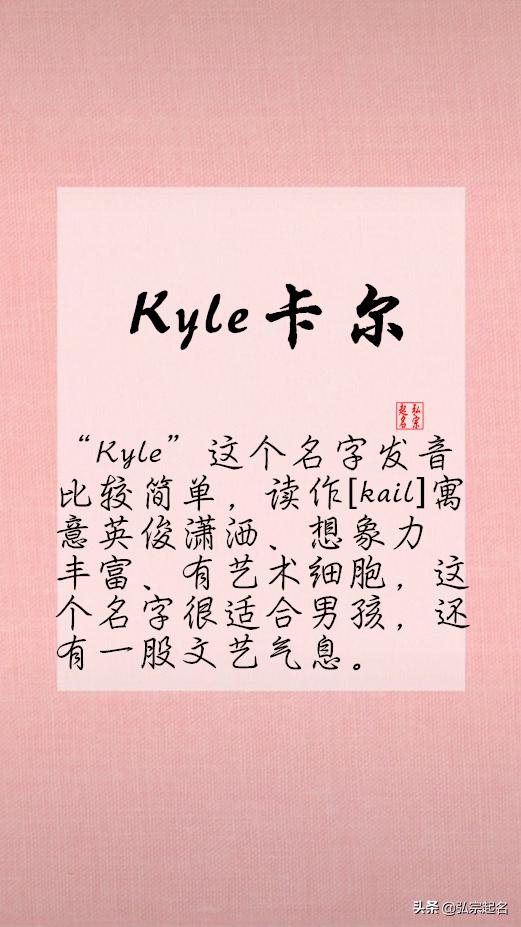 Kyle卡尔
弘宗
起名
“Kyle”这个名字发音
比较简单，读作[kail]寓
意英俊潇洒、想象力
丰富、有艺术细胞，这
个名字很适合男孩，还
有一股文艺气息。
头条 @弘宗起名